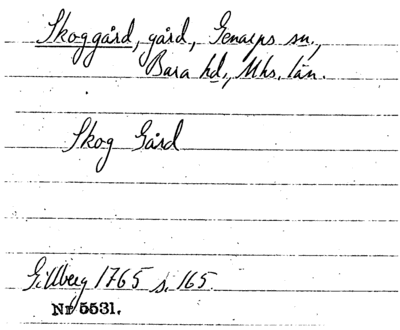 Skoggård, gård, Genarps sn.,
Bara hd., Mhs. län.
Skog Gård
Gillberg 1765 s. 165.
Nr 5531.